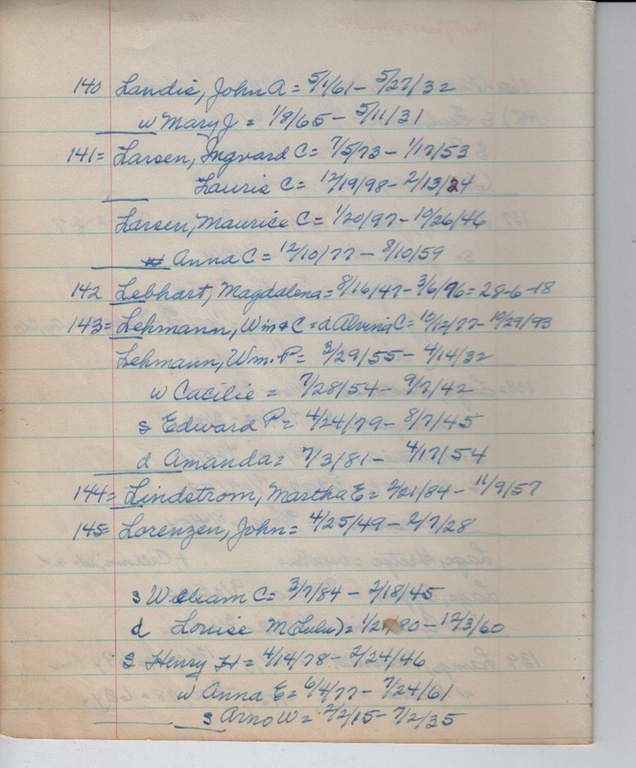 140 Landis, John A = 5/1/61 - 5/27/32
w Mary J = 1/8/65 - 5/11/31
141= Larsen, Ingvard C = 7/5/73 - 1/17/53
Lauris C = 12/19/98 - 2/13/24
Larsen, Maurice C = 1/20/97 - 10/26/46
Anna C = 12/10/77 - 8/10/59
142 Lebhart, Magdalena = 8/16/47 - 3/6/76 = 28-6-18
143= Lehmann, Wm & C = d Alvina C = 10/12/77 - 10/29/93
Lehmann, Wm. P = 3/29/55 - 4/14/32
w Cacilie = 7/28/54 - 9/7/42
s Edward P = 4/24/79 - 8/7/45
d Amanda = 7/3/81 - 4/17/54
144= Lindstrom, Martha E = 2/21/84 - 11/9/57
145= Lorenzen, John = 4/25/49 - 2/7/28
s William C = 3/7/84 - 2/18/45
d Louise M (Lulu) = 80 - 12/3/60
s Henry H = 4/14/78 - 2/24/46
w Anna E = 6/4/77 - 7/24/61
s Arno W = 2/2/15 - 7/2/35